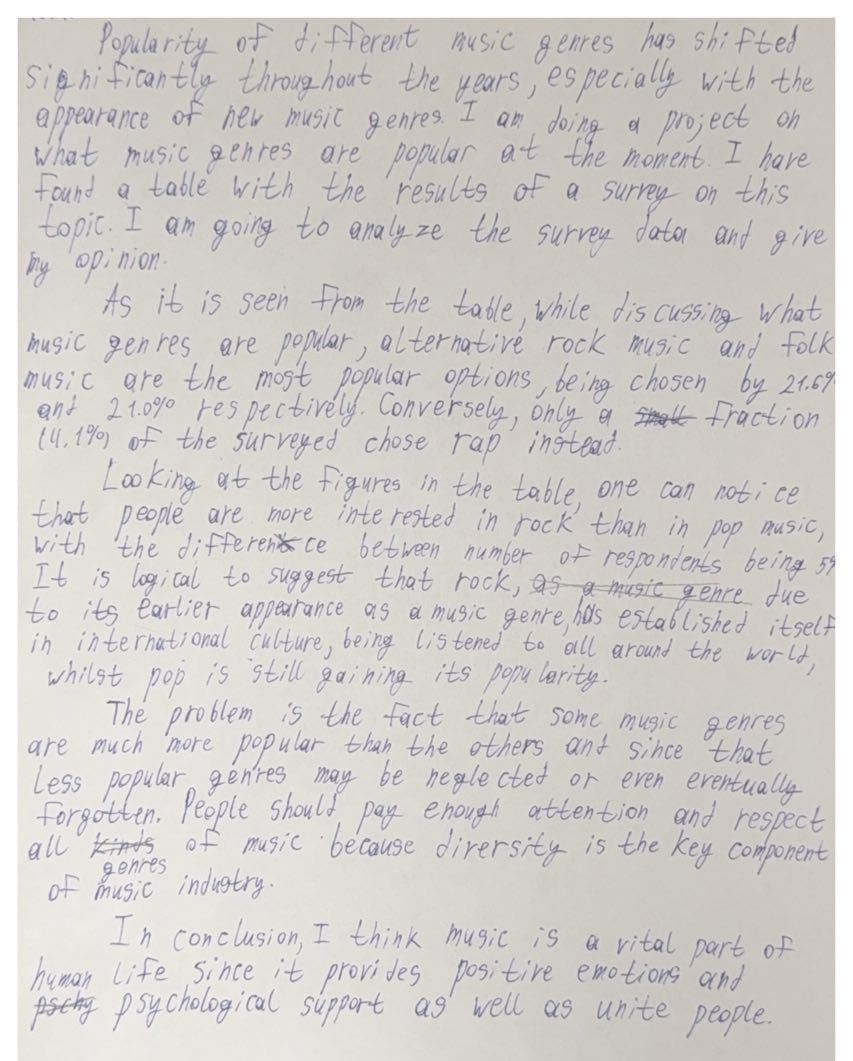 Popularity of different music genres has shifted
significantly throughout the years, especially with the
appearance of new music genres. I am doing a project on
what music genres are popular at the moment. I have
found a table with the results of a survey on this
topic. I am going to analyze the survey data and give
my opinion.
As it is seen from the table, while discussing what
music genres are popular, alternative rock music and folk
music are the most popular options, being chosen by 21.6%
and 21.0% respectively. Conversely, only a small fraction
(4.1%) of the surveyed chose rap instead.
Looking at the figures in the table, one can notice
that people are more interested in rock than in pop music,
with the difference between number of respondents being
It is logical to suggest that rock, as a music genre due
to its earlier appearance as a music genre, has established itself
in international culture, being listened to all around the world,
whilst pop is still gaining its popularity.
The problem is the fact that some music genres
are much more popular than the others and since that
less popular genres may be neglected or even eventually
forgotten. People should pay enough attention and respect
all kinds of music because diversity is the key component
genres
of music industry.
In conclusion, I think music is a vital part of
human life since it provides positive emotions and
pschy psychological support as well as unite people.